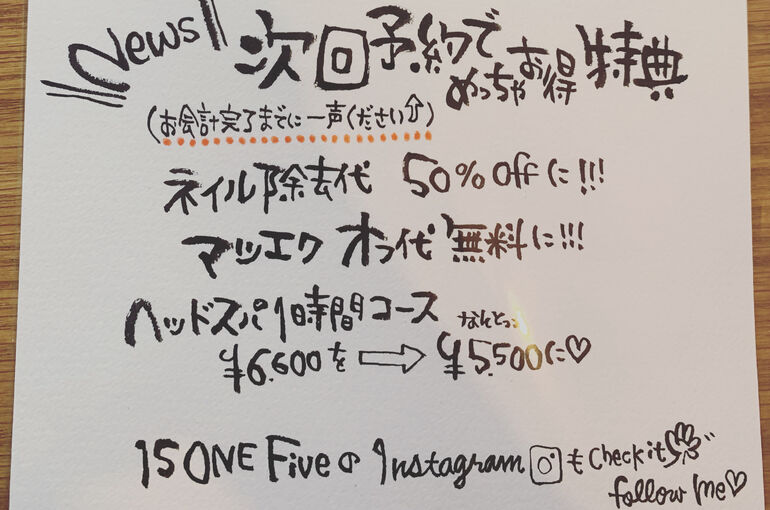 News!!
次回予約でめっちゃお得特典
(お会計完了までに一声ください⇧)
ネイル除去代 50%offに!!!
マツエク オフ代 無料に!!!
ヘッドスパ1時間コース なんとっ..
¥6.600を⇨¥5.500に♡
15 ONE FiveのInstagramもcheck it
follow me♡